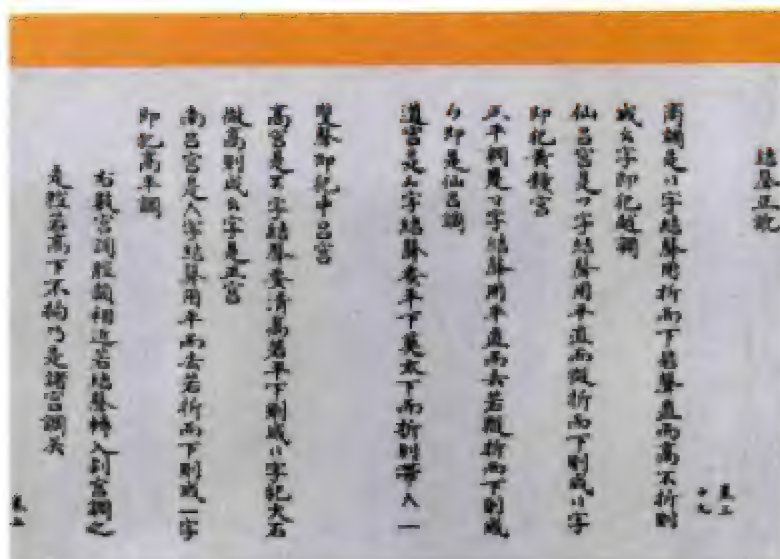 結聲正訛
商調是リ字結聲用折而下若聲直而高不折則
成么字即犯越調
仙呂宮是フ字結聲用平直而微折而下則成リ字
即犯黃鐘宮
正平調是マ字結聲用平直而去若微折而下則成
ク即是仙呂調
道宮是ム字結聲要平下莫太下而折則帶人一
雙聲即犯中呂宮
高宮是マ字結聲要清高若平下則成リ字犯大石
微高則成么字是正宮
南呂宮是人字結聲用平而去若折而下則成一字
即犯高平調
右數宮調腔韻相近若結聲轉入別宮調之
走腔若高下不拘乃是諸宮調矣